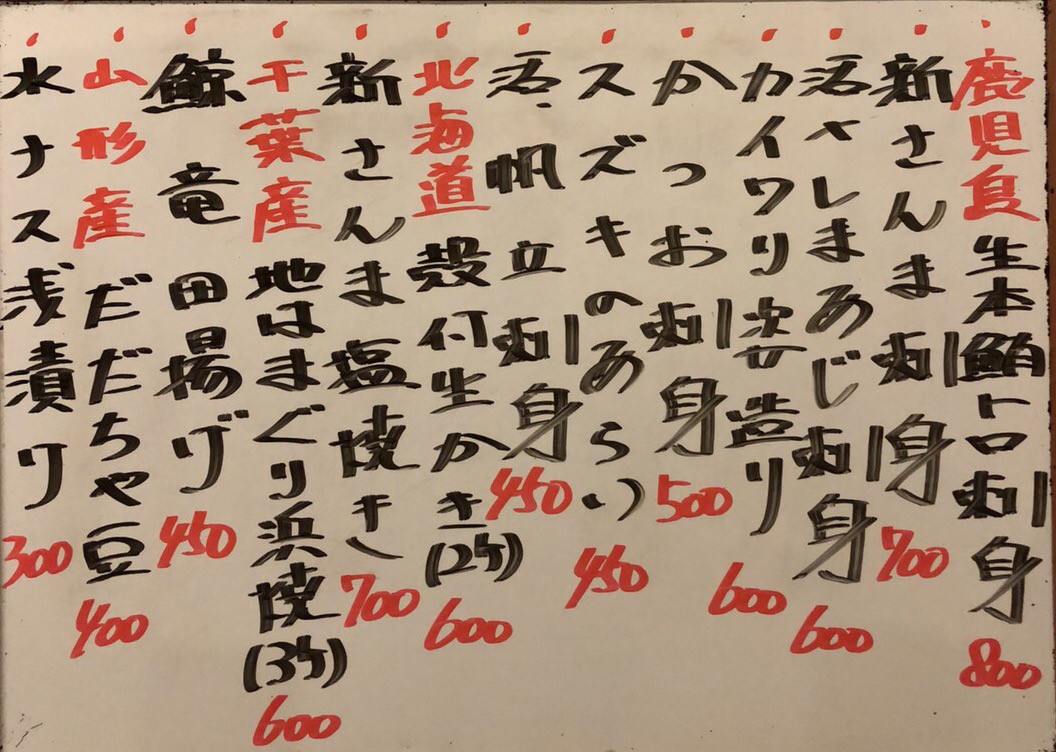 鹿児島生本鮪トロ刺身 800
新さんま刺身 700
活〆しまあじ刺身 600
カイワリ姿造り 600
かつお刺身 500
スズキのあらい 450
活帆立刺身 450
北海道殻付生かき(2ケ) 600
新さんま塩焼き 700
千葉産地はまぐり浜焼(3ケ) 600
鯨竜田揚げ 450
山形産だだちゃ豆 400
水ナス浅漬け 300